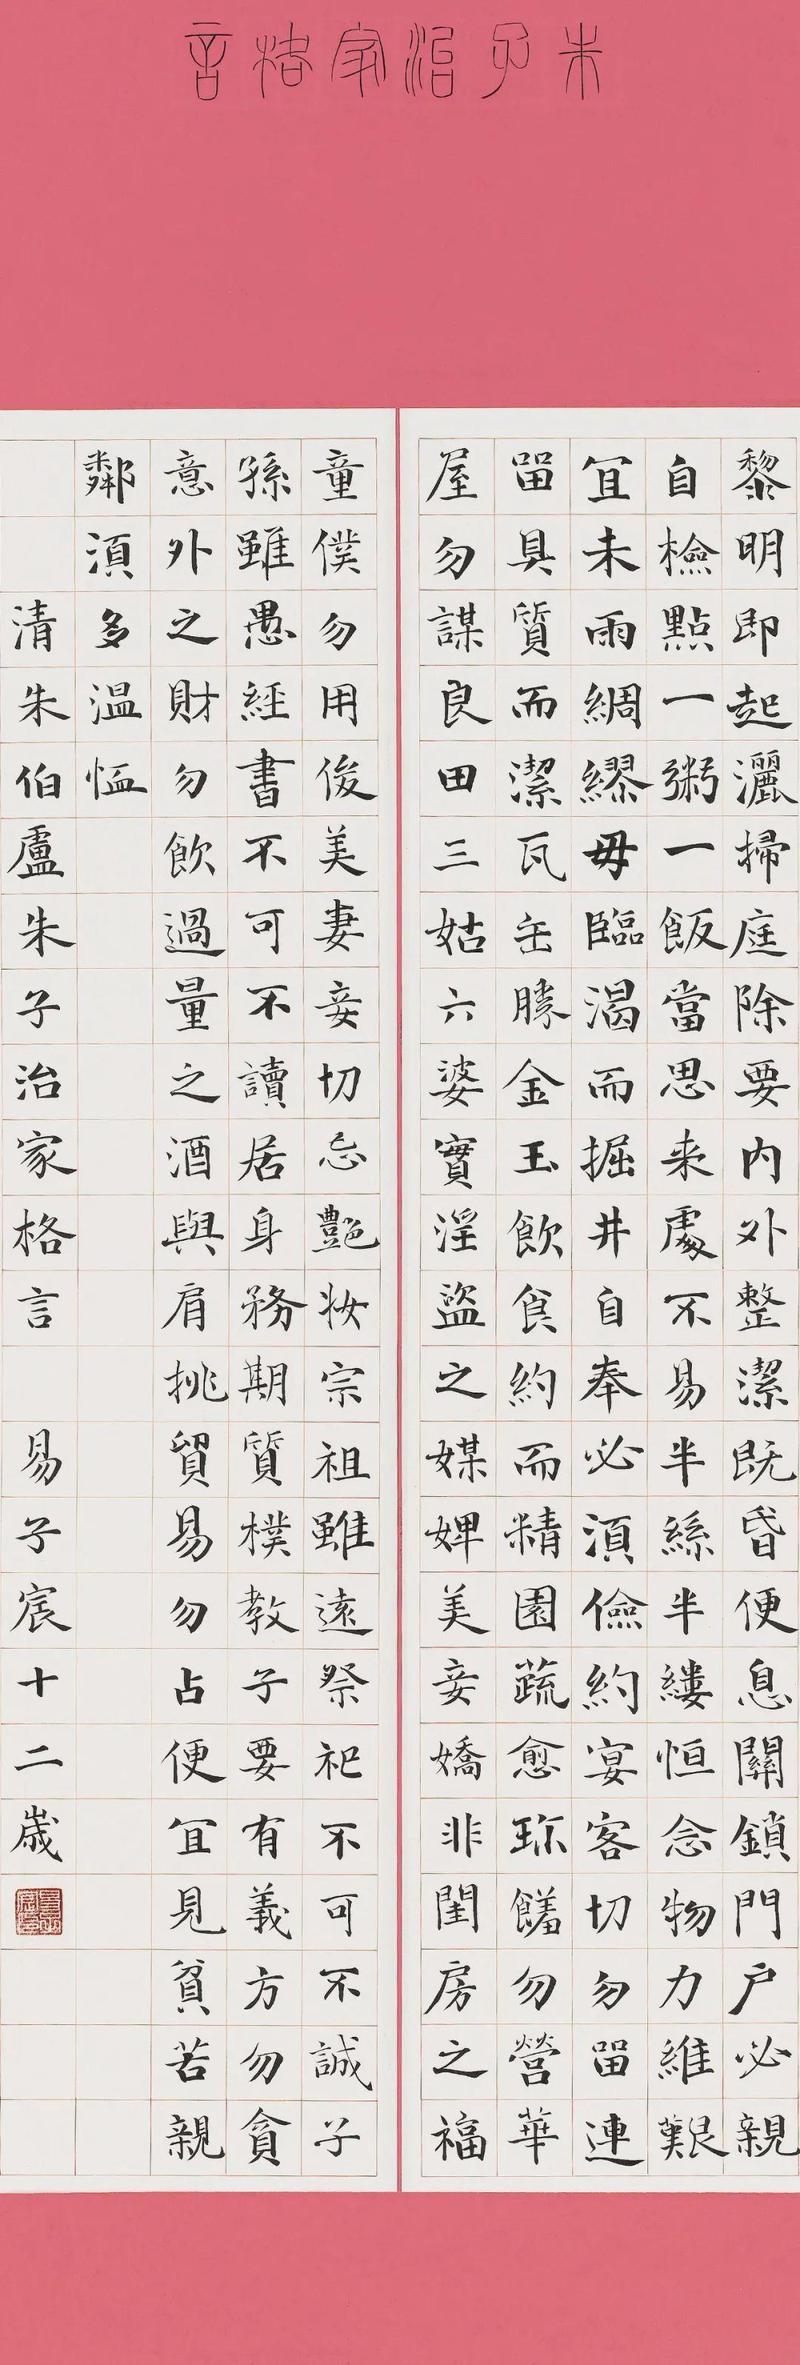 朱子治家格言
黎明即起灑掃庭除要内外整潔既昏便息關鎖門户必親
自檢點一粥一飯當思来處不易半絲半縷恒念物力維艱
宜未雨綢繆毋臨渴而掘井自奉必湏儉約宴客切勿留連
留具質而潔瓦缶勝金玉飲食約而精園蔬愈珎饈勿營華
屋勿謀良田三姑六婆實淫盜之媒婢美妾嬌非閨房之福
童僕勿用俊美妻妾切忌艷妝宗祖雖遠祭祀不可不誠子
孫雖愚經書不可不讀居身務期質樸教子要有義方勿貪
意外之財勿飲過量之酒與肩挑貿易勿占便宜見貧苦親
鄰湏多温恤
清朱伯盧朱子治家格言 易子宸十二歲